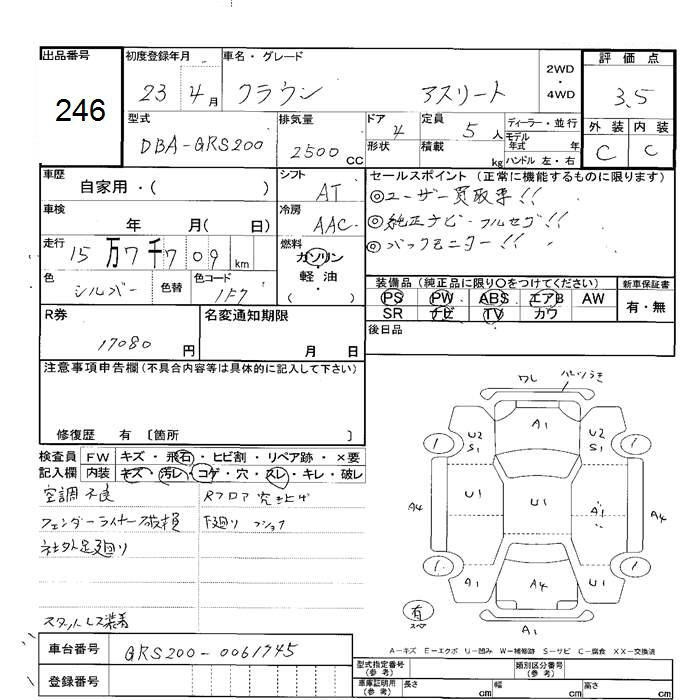 出品番号 初度登録年月 車名・グレード 2WD・4WD 評価点
246 23 4月 クラウン アスリート 3.5
型式 排気量 ドア 4 定員 5人 ディーラー・並行 外装 内装
DBA-GRS200 2500cc 形状 積載 kg モデル年式 年 ハンドル 左・右 C C
車歴 シフト セールスポイント (正常に機能するものに限ります)
自家用・( ) AT ◎ユーザー買取車!!
車検 冷房 ◎純正ナビ・フルセグ!!
年 月( 日) AAC ◎バックモニター!!
走行 15万7千709km 燃料 ガソリン・軽油 ( )
色 シルバー 色替 色コード 1F7
装備品 (純正品に限り○をつけてください) 新車保証書
PS PW ABS エアB AW 有・無
SR ナビ TV カワ
R券 名変通知期限 後日品
17080円 月 日
注意事項申告欄(不具合内容等は具体的に記入して下さい)
修復歴 有 〔箇所 〕
検査員 FW キズ・飛石・ヒビ割・リペア跡・×要
記入欄 内装 キズ・汚レ・コゲ・穴・スレ・キレ・破レ
空調不良 Rフロア突き上げ
フェンダーライナー破損 下廻り
社外足廻り
スタットレス装着
車台番号 GRS200-0061745
登録番号
ワレ
A1
1 U2 S1 U2 S1 1
A4 U1 U1 A1 A4
1 A1 A4 U1 1
有 スペア A1
A-キズ E-エクボ U-凹み W-補修跡 S-サビ C-腐食 XX-交換済
型式指定番号(参考) 類別区分番号(参考)
車庫証明用(参考) 長さ cm 幅 cm 高さ cm